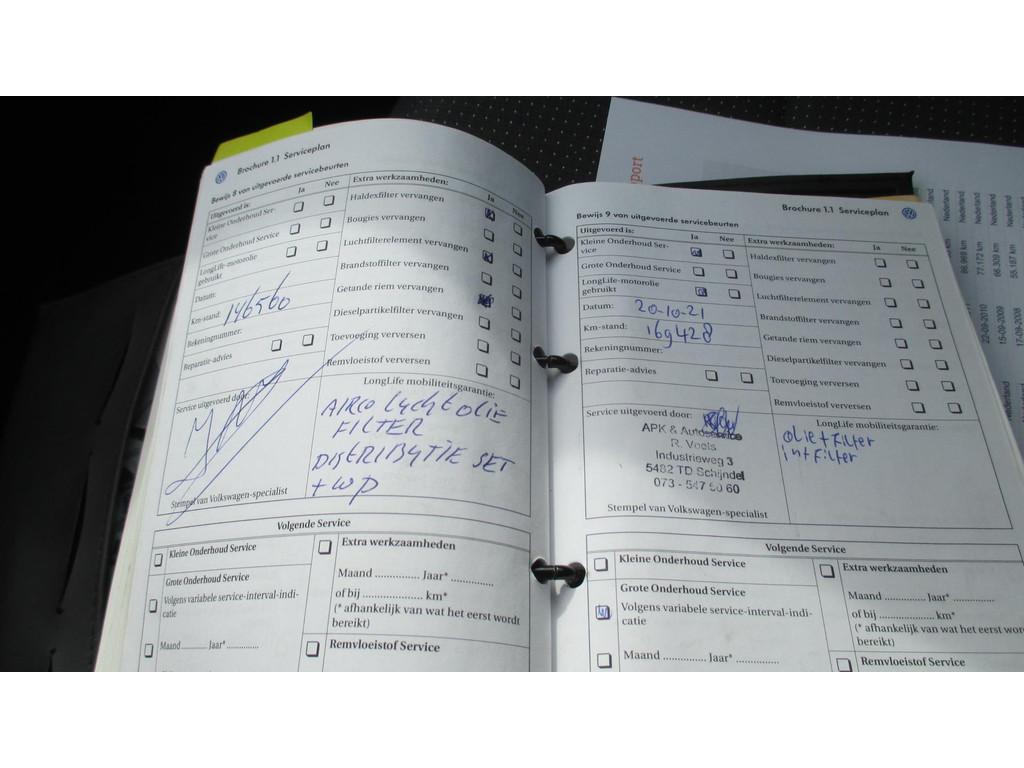 Brochure 1.1 Serviceplan
Bewijs 8 van uitgevoerde servicebeurten
Uitgevoerd is: Ja Nee
Kleine Onderhoud Ser-
vice
Grote Onderhoud Service
LongLife-motorolie
gebruikt
Datum:
Km-stand: 146560
Rekeningnummer:
Reparatie-advies
Extra werkzaamheden: Ja Nee
Haldexfilter vervangen
Bougies vervangen
Luchtfilterelement vervangen
Brandstoffilter vervangen
Getande riem vervangen
Dieselpartikelfilter vervangen
Toevoeging verversen
Remvloeistof verversen
Service uitgevoerd door:
Stempel van Volkswagen-specialist
LongLife mobiliteitsgarantie:
AIRCO Lucht OLIE
FILTER
DISTRIBUTIE SET
+ WP
Volgende Service
Kleine Onderhoud Service
Grote Onderhoud Service
Volgens variabele service-interval-indi-
catie
Maand ............ Jaar* ..............
Extra werkzaamheden
Maand .............. Jaar* .............
of bij .................. km*
(* afhankelijk van wat het eerst wordt
bereikt)
Remvloeistof Service
Brochure 1.1 Serviceplan
Bewijs 9 van uitgevoerde servicebeurten
Uitgevoerd is: Ja Nee
Kleine Onderhoud Ser-
vice
Grote Onderhoud Service
LongLife-motorolie
gebruikt
Datum: 20-10-21
Km-stand: 169428
Rekeningnummer:
Reparatie-advies
Extra werkzaamheden: Ja Nee
Haldexfilter vervangen
Bougies vervangen
Luchtfilterelement vervangen
Brandstoffilter vervangen
Getande riem vervangen
Dieselpartikelfilter vervangen
Toevoeging verversen
Remvloeistof verversen
Service uitgevoerd door:
APK & Autoservice
Industrieweg 3
5482 TD Schijndel
Stempel van Volkswagen-specialist
LongLife mobiliteitsgarantie:
olie + Filter
int Filter
Volgende Service
Kleine Onderhoud Service
Grote Onderhoud Service
Volgens variabele service-interval-indi-
catie
Maand ............ Jaar* .............
Extra werkzaamheden
Maand ............ Jaar* .............
of bij ................ km*
(* afhankelijk van wat het eerst wordt
bereikt)
Remvloeistof Service
port
Nederland
Nederland
Nederland
Nederland
86.969 km
77.172 km
66.309 km
55.187 km
22-09-2010
15-09-2009